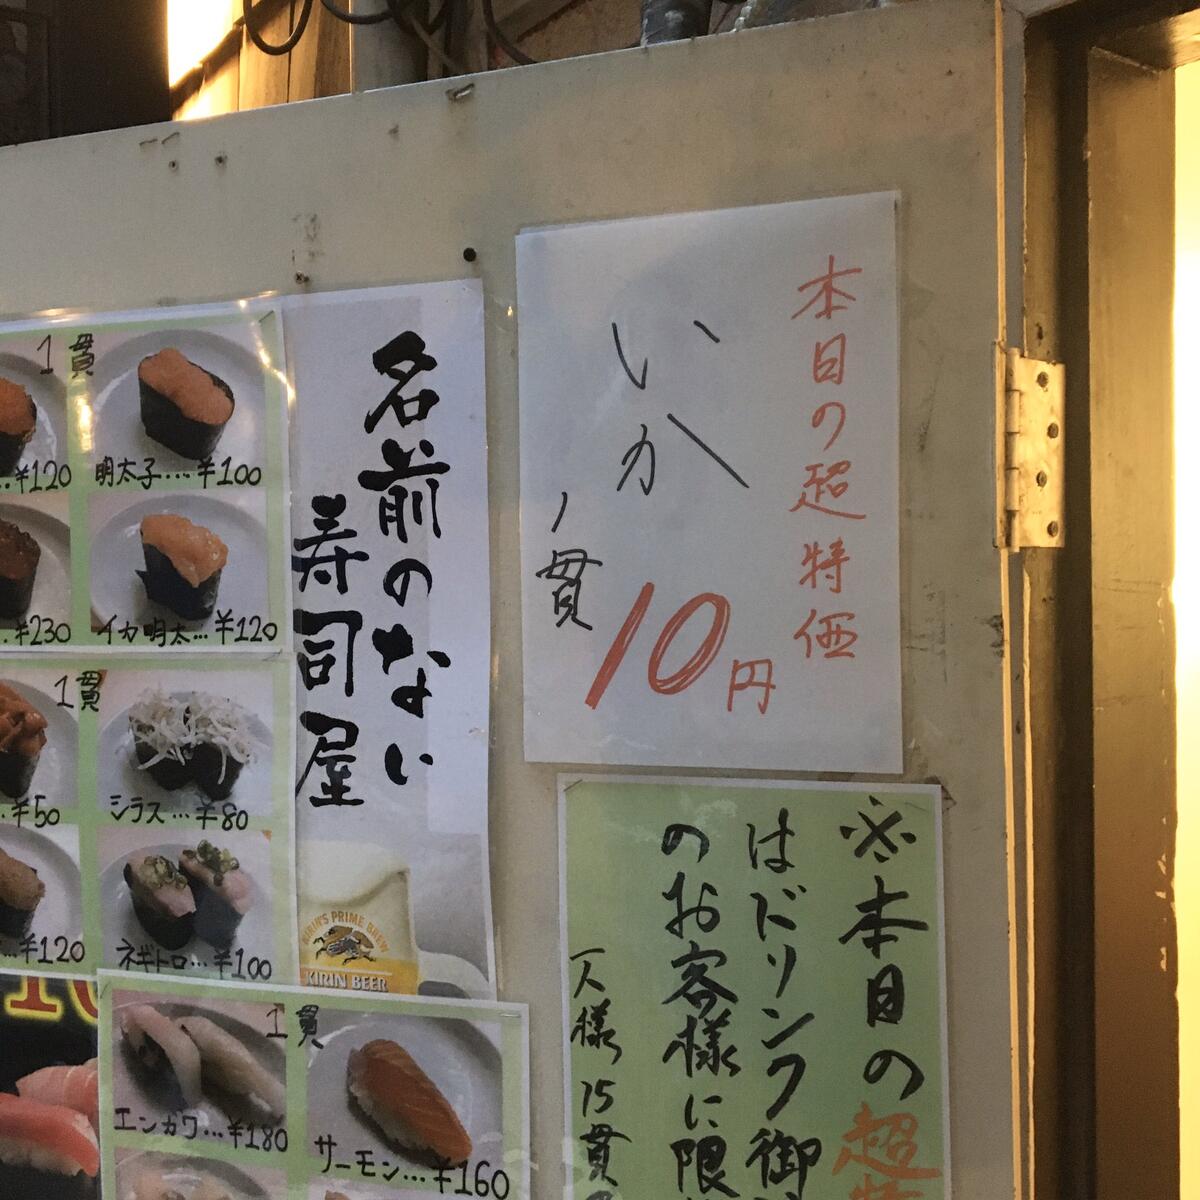 本日の超特価
いか
1貫
10円
名前のない
寿司屋
KIRIN'S PRIME BREW
KIRIN BEER
1貫
¥120
明太子…¥100
¥230
イカ明太…¥120
1貫
¥50
シラス…¥80
¥120
ネギトロ…¥100
1貫
エンガワ…¥180
サーモン…¥160
※本日の超
はドリンク御
のお客様に限
一人様15貫